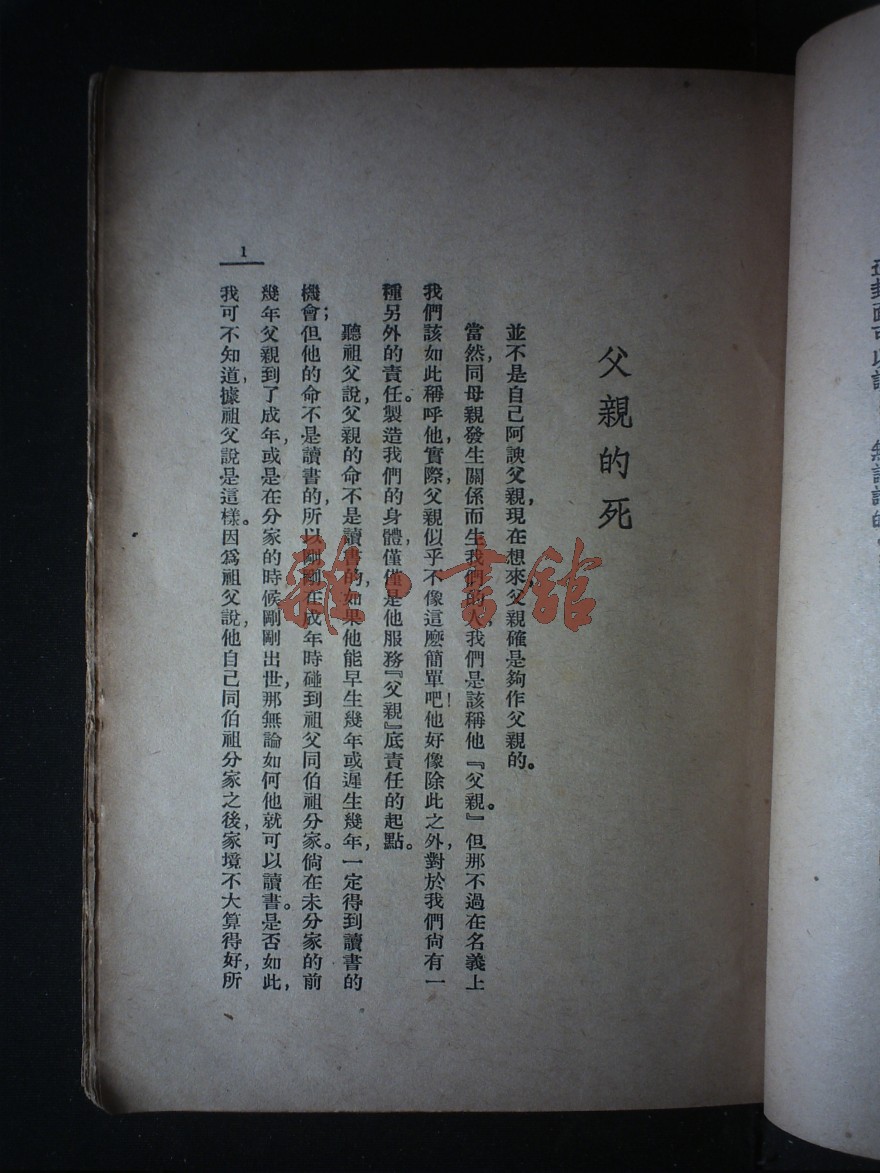 父親的死
並不是自己阿諛父親，現在想來，父親確是夠作父親的。
當然，同母親發生關係而生我們的人，我們是該稱他『父親』。但那不過在名義上
我們該如此稱呼他，實際，父親似乎不像這麽簡單吧！他好像除此之外，對於我們尙有一
種另外的責任。製造我們的身體，僅僅是他服務『父親』底責任的起點。
聽祖父說，父親的命不是讀書的，如果他能早生幾年或遲生幾年，一定得到讀書的
機會；但他的命不是讀書的，所以剛剛在成年時碰到祖父同伯祖分家。倘在未分家的前
幾年父親到了成年，或是在分家的時候剛剛出世，那無論如何他就可以讀書。是否如此，
我可不知道，據祖父說是這樣。因爲祖父說，他自己同伯祖分家之後，家境不大算得好，所
1
雜·書館